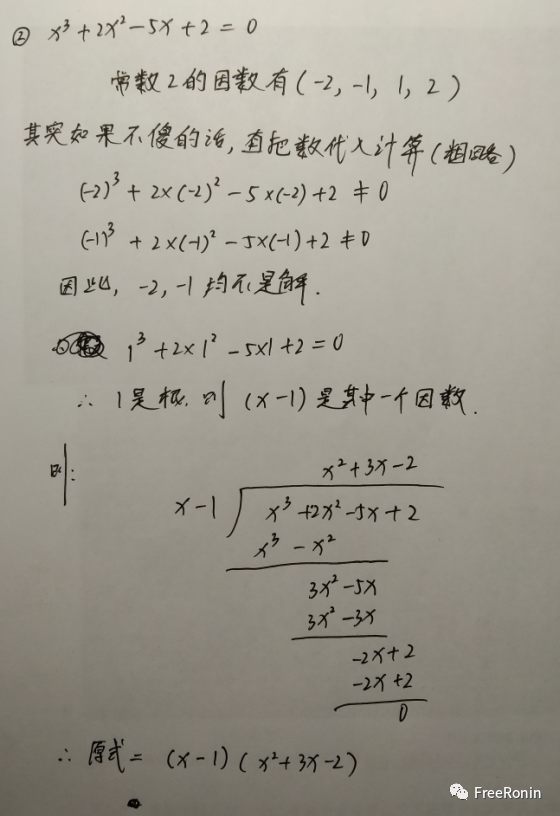 ② x³ + 2x² - 5x + 2 = 0
常数2的因数有(-2, -1, 1, 2)
其实如果不傻的话,直把数代入计算(粗略)
(-2)³ + 2×(-2)² - 5×(-2) + 2 ≠ 0
(-1)³ + 2×(-1)² - 5×(-1) + 2 ≠ 0
因此, -2, -1 均不是解.
1³ + 2×1² - 5×1 + 2 = 0
∴ 1是根. 则 (x-1) 是其中一个因数.
则:
x² + 3x - 2
x - 1 x³ + 2x² - 5x + 2
x³ - x²
3x² - 5x
3x² - 3x
-2x + 2
-2x + 2
0
∴ 原式 = (x-1) (x² + 3x - 2)
FreeRonin